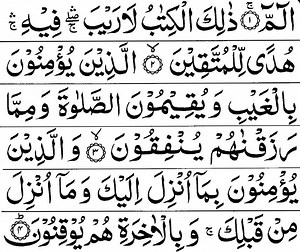 الٓمّٓ ۚ ﴿۱﴾ ذٰلِكَ الْكِتٰبُ لَا رَيْبَ ۛۖۚ فِيْهِ ۛۚ
هُدًى لِّلْمُتَّقِيْنَ ﴿۲﴾ الَّذِيْنَ يُؤْمِنُوْنَ
بِالْغَيْبِ وَيُقِيْمُوْنَ الصَّلٰوةَ وَمِمَّا
رَزَقْنٰهُمْ يُنْفِقُوْنَ ﴿۳﴾ وَالَّذِيْنَ
يُؤْمِنُوْنَ بِمَاۤ اُنْزِلَ اِلَيْكَ وَمَاۤ اُنْزِلَ
مِنْ قَبْلِكَ ۚ وَبِالْاٰخِرَةِ هُمْ يُوْقِنُوْنَ ؕ﴿۴﴾